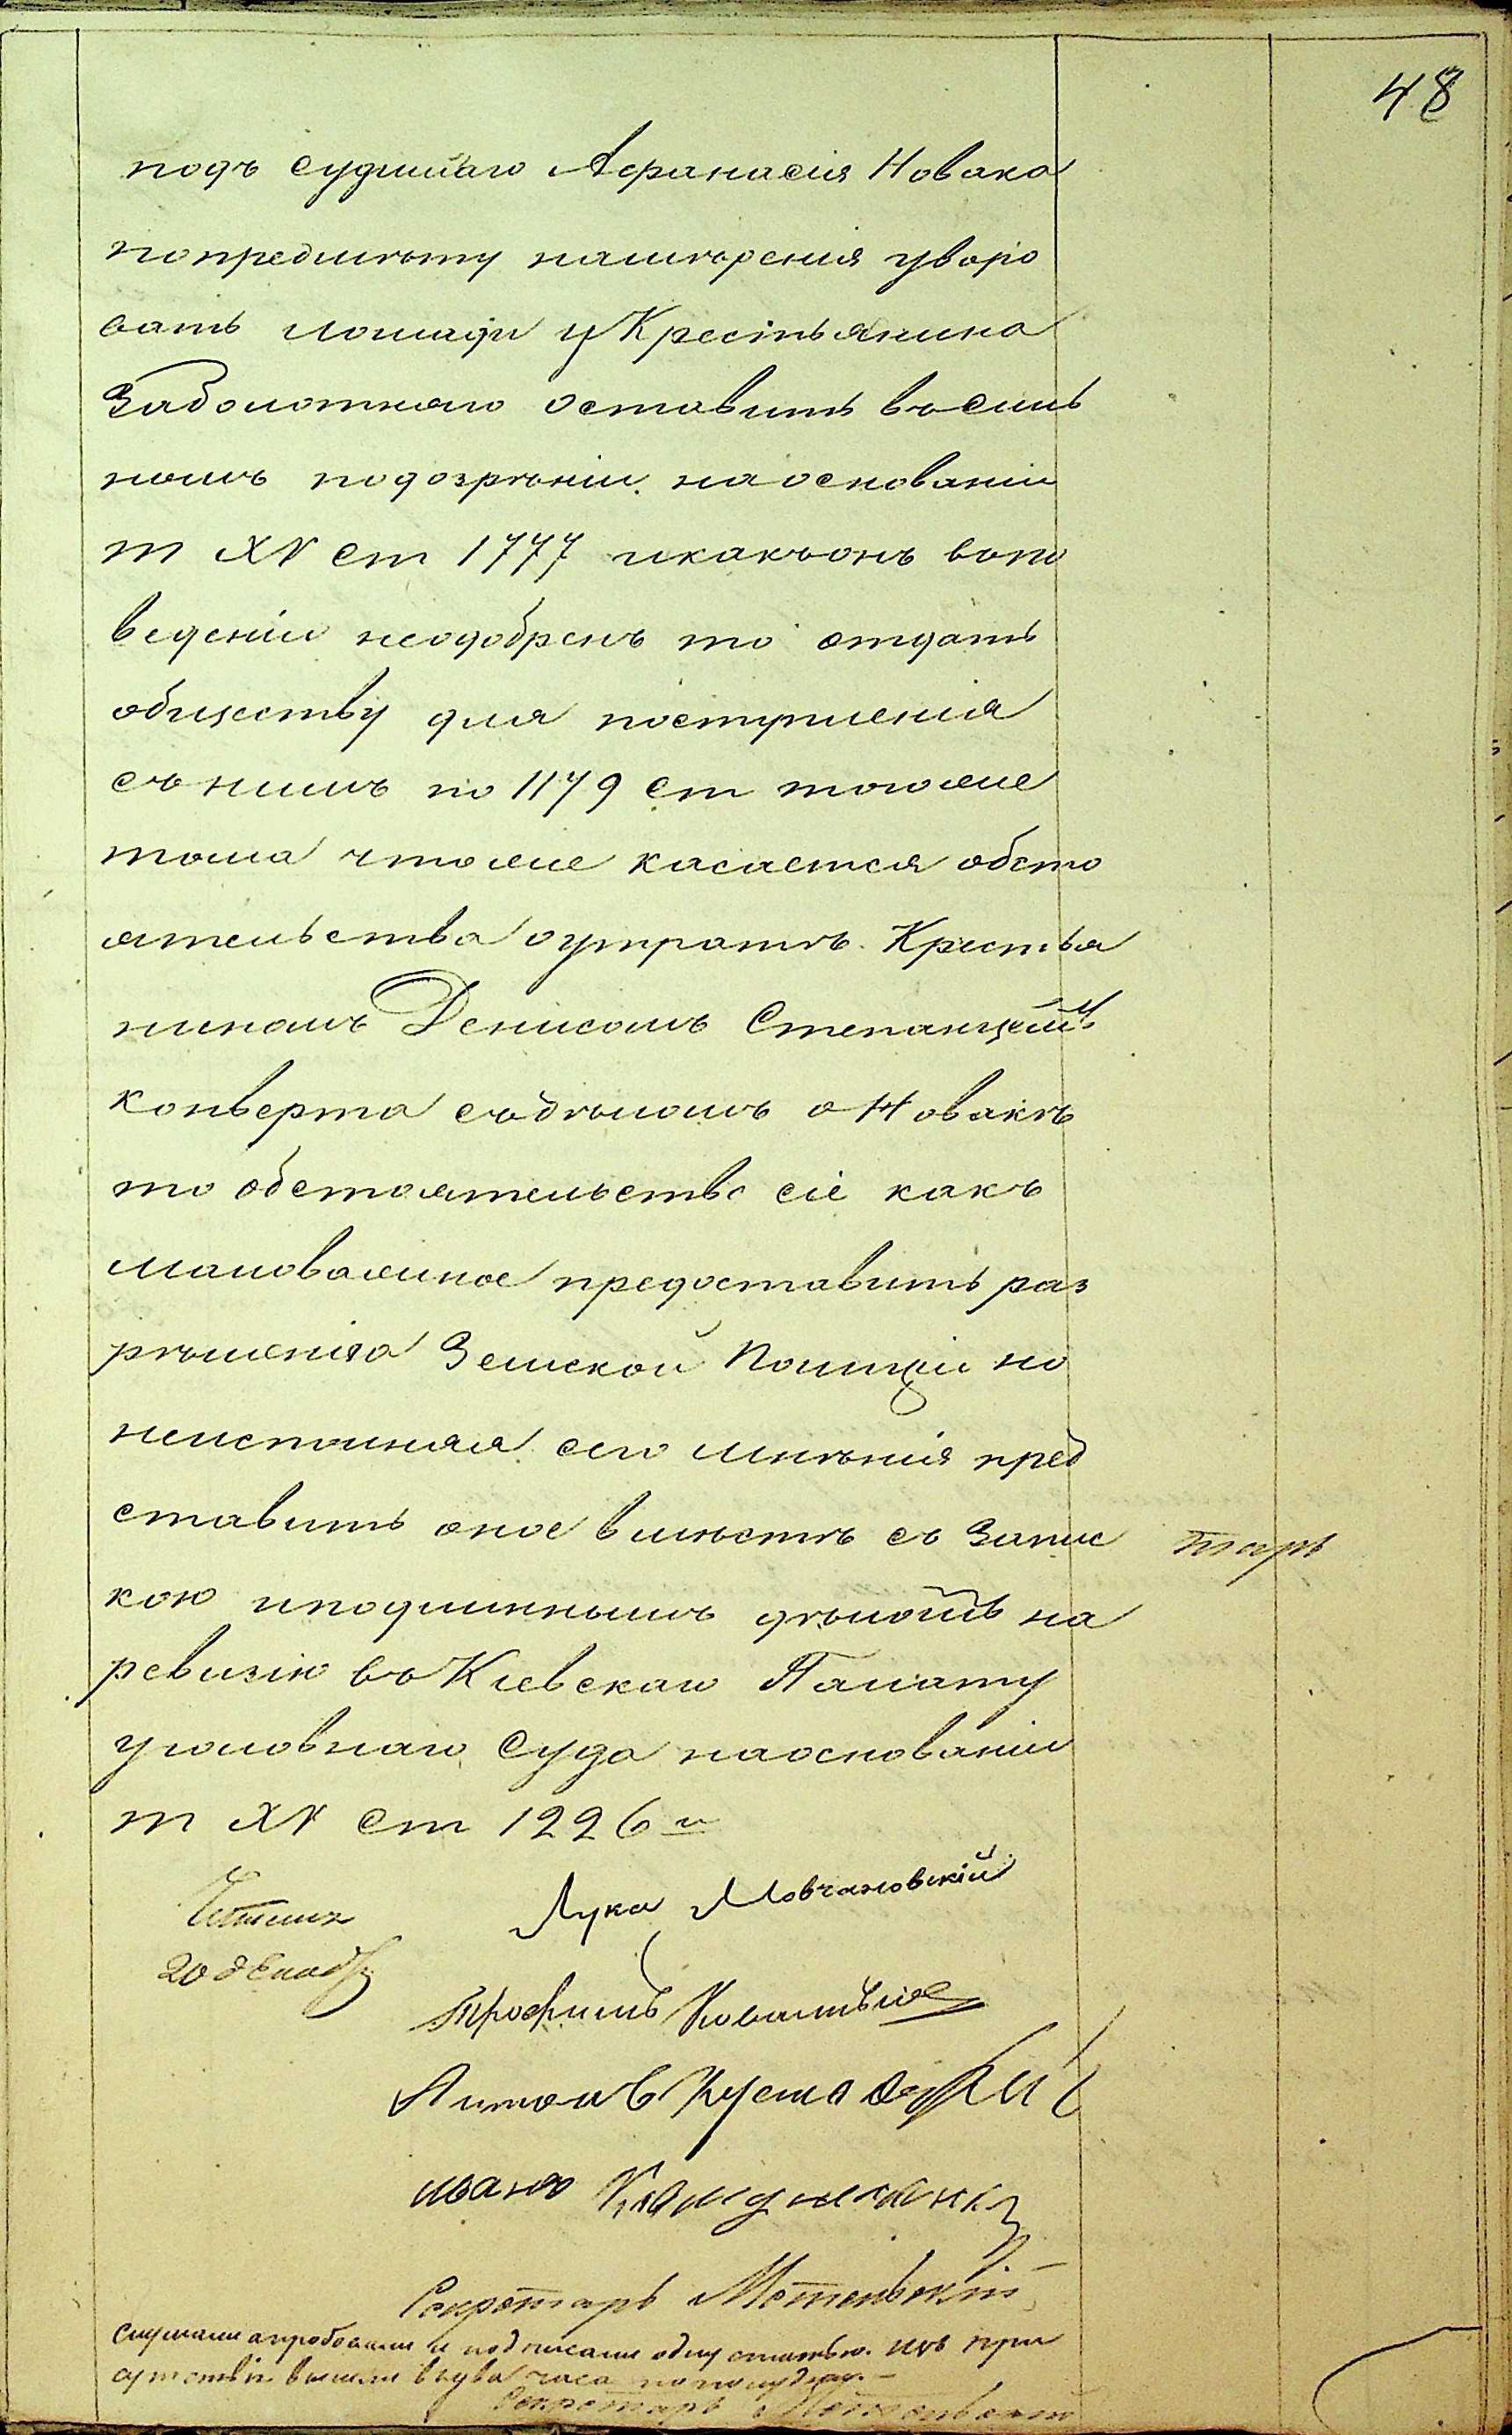 48
подъ судимаго Афанасія Новака
попредмѣту намѣренія уворо
вать лошади у Крестьянина
Заболотнаго оставить въ силь
номъ подозрѣніи на основаніи
т XV ст 1777 и какъ онъ в по
ведении неодобренъ то отдать
обществу для поступленія
съ нимъ по 1179 ст того же
тома что же касается обсто
ятельства о утратѣ Крестья
ниномъ Денисомъ Степанцемъ
конверта съ дѣломъ о Новакѣ
то обстоятельство сіе какъ
маловажное предоставить раз
рѣшенію Земской Полиціи но
неисполняя сего мнѣнія пред
ставить оное вмѣстѣ съ Запис
кою и подлиннымъ дѣломъ на
ревизію въ Кіевскую Палату
уголовнаго Суда на основаніи
т XV ст 1226 й
Лука Мовчановскій
20 декабр
Трофимъ
Антонъ
иванъ
Секретарь
Слушали апробовали и подписали одну статью. Изъ при
сутствія вышли въ два часа пополудни. –
Секретарь
тарь